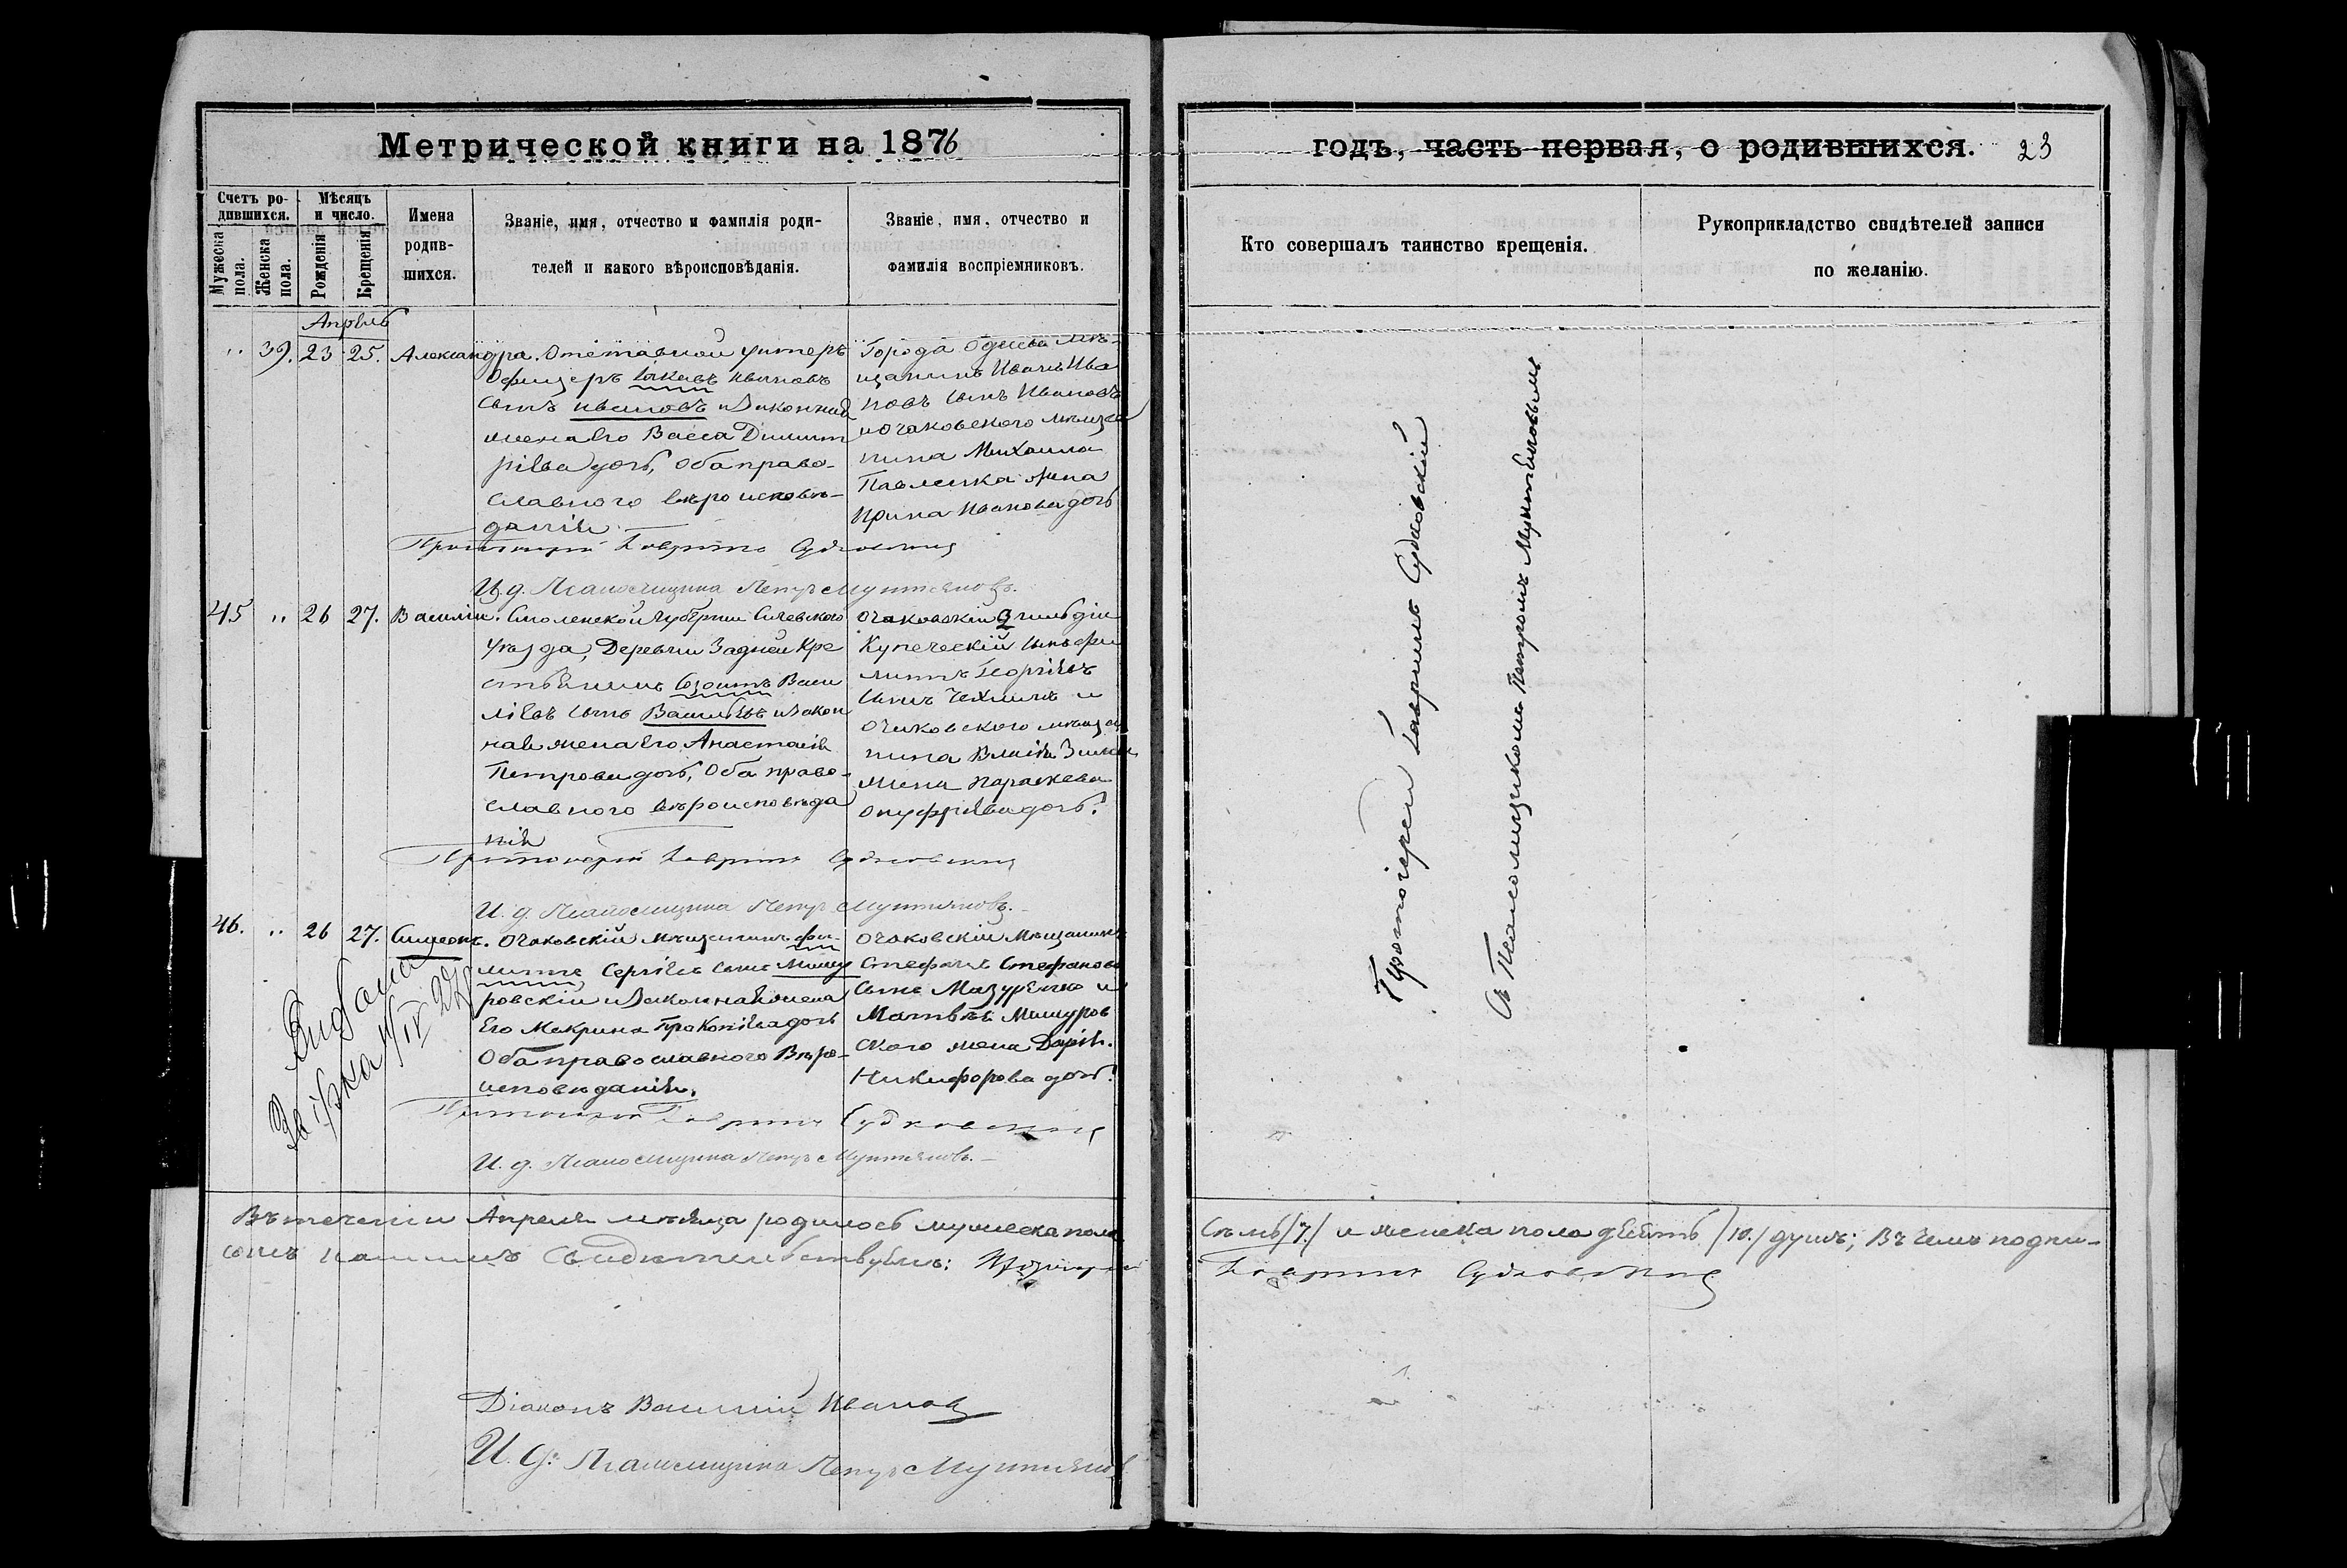 Метрической книги на 1876
годъ, часть первая, о родившихся. 23
Счетъ ро-
дившихся.
Мужеска
пола.
Женска
пола.
Мѣсяцъ
и число.
Рожденія
Крещенія
Имена
родив-
шихся.
Званіе, имя, отчество и фамилія роди-
телей и какого вѣроисповѣданія.
Званіе, имя, отчество и
фамилія воспріемниковъ.
Кто совершалъ таинство крещенія.
Рукоприкладство свидѣтелей записи
по желанію.
Апрѣль
" 39. 23 25. Александра. Отставной унтеръ
Офицеръ Іаковъ Ивановъ
сынъ Ивановъ и законная
жена его Васса Димит
ріева дочь, Оба право-
славнаго вѣроисповѣ-
данія.
Города Одессы мѣ-
щанинъ Иванъ Ива
новъ сынъ Ивановъ
и Очаковского мѣща
нина Михаила
Павленка жена
Ирина Иванова дочь
Протоіерей Гавріилъ Судковскій
И. д. Псаломщика Петръ Мунтяновъ.
45 " 26 27. Василій. Смоленской губерніи Сычевского
уѣзда, Деревни Задней Кре
стьянинъ Созонтъ Васи
ліевъ сынъ Васильевъ и закон
ная жена его Анастасія
Петрова дочь, Оба право-
славного вѣроисповѣда
нія
Очаковскій 2 гильдіи
Купеческій сынъ Фи
липпъ Георгіевъ
сынъ и
Очаковского мѣща
нина Власія
жена Параскева
Онуфріева дочь.
Протоіерей Гавріилъ Судковскій
И. д. Псаломщика Петръ Мунтяновъ.
46. " 26 27. Симеонъ. Очаковскій Мѣщанинъ Фи-
липпъ Сергіевъ сынъ Машу
ровскій и законная жена
его Макрина Прокопіева дочь
Оба православного Вѣро-
исповѣданія.
Очаковскій Мѣщанинъ
Стефанъ Стефановъ
сынъ Мазуренко и
Матвѣя Машуров
ского жена Дарія.
Никифорова дочь.
Протоіерей Гавріилъ Судковскій
И. д. Псаломщика Петръ Мунтяновъ.
Протоіерей Гавріилъ Судковскій
съ Псаломщикомъ Петромъ Мунтяновымъ
Въ теченіи Апреля мѣсяца родилось мужеска пола
семь /7/ и женска пола десять /10./ душъ; Въ чемъ подпи-
сомъ нашимъ свидѣтельствуемъ: Протоіерей
Гавріилъ Судковскій
Діаконъ Василій Ивановъ
И. д. Псаломщика Петръ Мунтяновъ